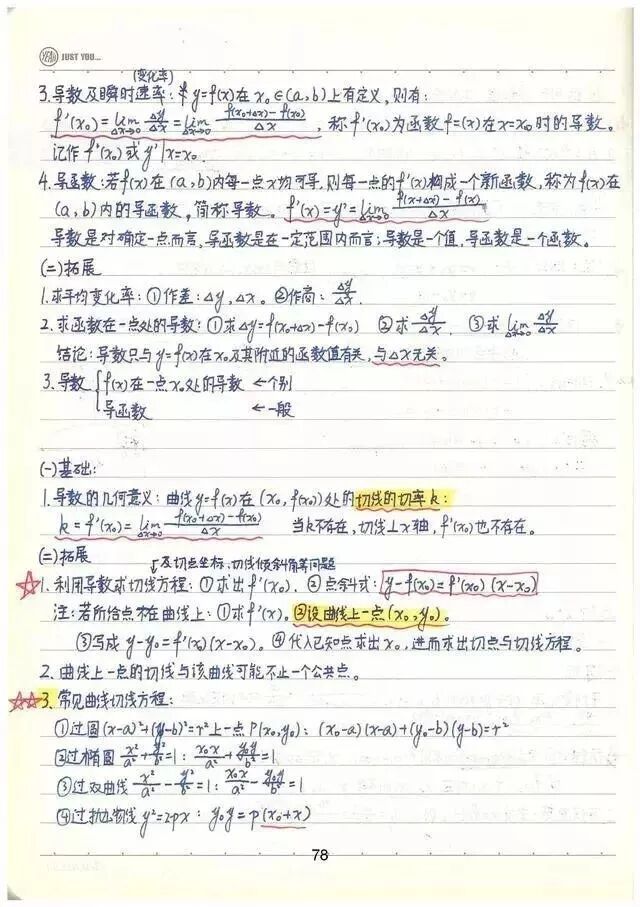 YEAH JUST YOU...
(变化率)
3.导数及瞬时速率: 若y=f(x)在x₀∈(a,b)上有定义,则有:
f'(x₀)=lim Δx→0 Δy/Δx=lim Δx→0 (f(x₀+Δx)-f(x₀))/Δx,称f'(x₀)为函数f=(x)在x=x₀时的导数。
记作f'(x₀)或y'|x=x₀.
4.导函数:若f(x)在(a,b)内每一点x均可导,则每一点的f'(x)构成一个新函数,称为f(x)在
(a,b)内的导函数,简称导数。f'(x)=y'=lim Δx→0 (f(x+Δx)-f(x))/Δx
导数是对确定一点而言,导函数是在一定范围内而言;导数是一个值,导函数是一个函数。
(二)拓展
1.求平均变化率:①作差:Δy,Δx。②作商:Δy/Δx.
2.求函数在一点处的导数:①求Δy=f(x₀+Δx)-f(x₀) ②求Δy/Δx. ③求lim Δx→0 Δy/Δx
结论:导数只与y=f(x)在x₀及其附近的函数值有关,与Δx无关。
3.导数{f(x)在一点x₀处的导数 ←个别
导函数 ←一般
(一)基础:
1.导数的几何意义:曲线y=f(x)在(x₀,f(x₀))处的切线的切率k:
k=f'(x₀)=lim Δx→0 (f(x₀+Δx)-f(x₀))/Δx 当k不存在,切线⊥x轴,f'(x₀)也不存在。
(二)拓展 ↓及切点坐标、切线倾斜角等问题
1.利用导数求切线方程:①求出f'(x₀). ②点斜式:y-f(x₀)=f'(x₀)(x-x₀)
注:若所给点不在曲线上:①求f'(x)。②设曲线上一点(x₀,y₀)。
③写成y-y₀=f'(x₀)(x-x₀)。④代入已知点求出x₀,进而求出切点与切线方程。
2.曲线上一点的切线与该曲线可能不止一个公共点。
3.常见曲线切线方程:
①过圆(x-a)²+(y-b)²=r²上一点P(x₀,y₀):(x₀-a)(x-a)+(y₀-b)(y-b)=r²
②过椭圆x²/a²+y²/b²=1:x₀x/a²+y₀y/b²=1
③过双曲线x²/a²-y²/b²=1:x₀x/a²-y₀y/b²=1
④过抛物线y²=2px:y₀y=p(x₀+x)
78